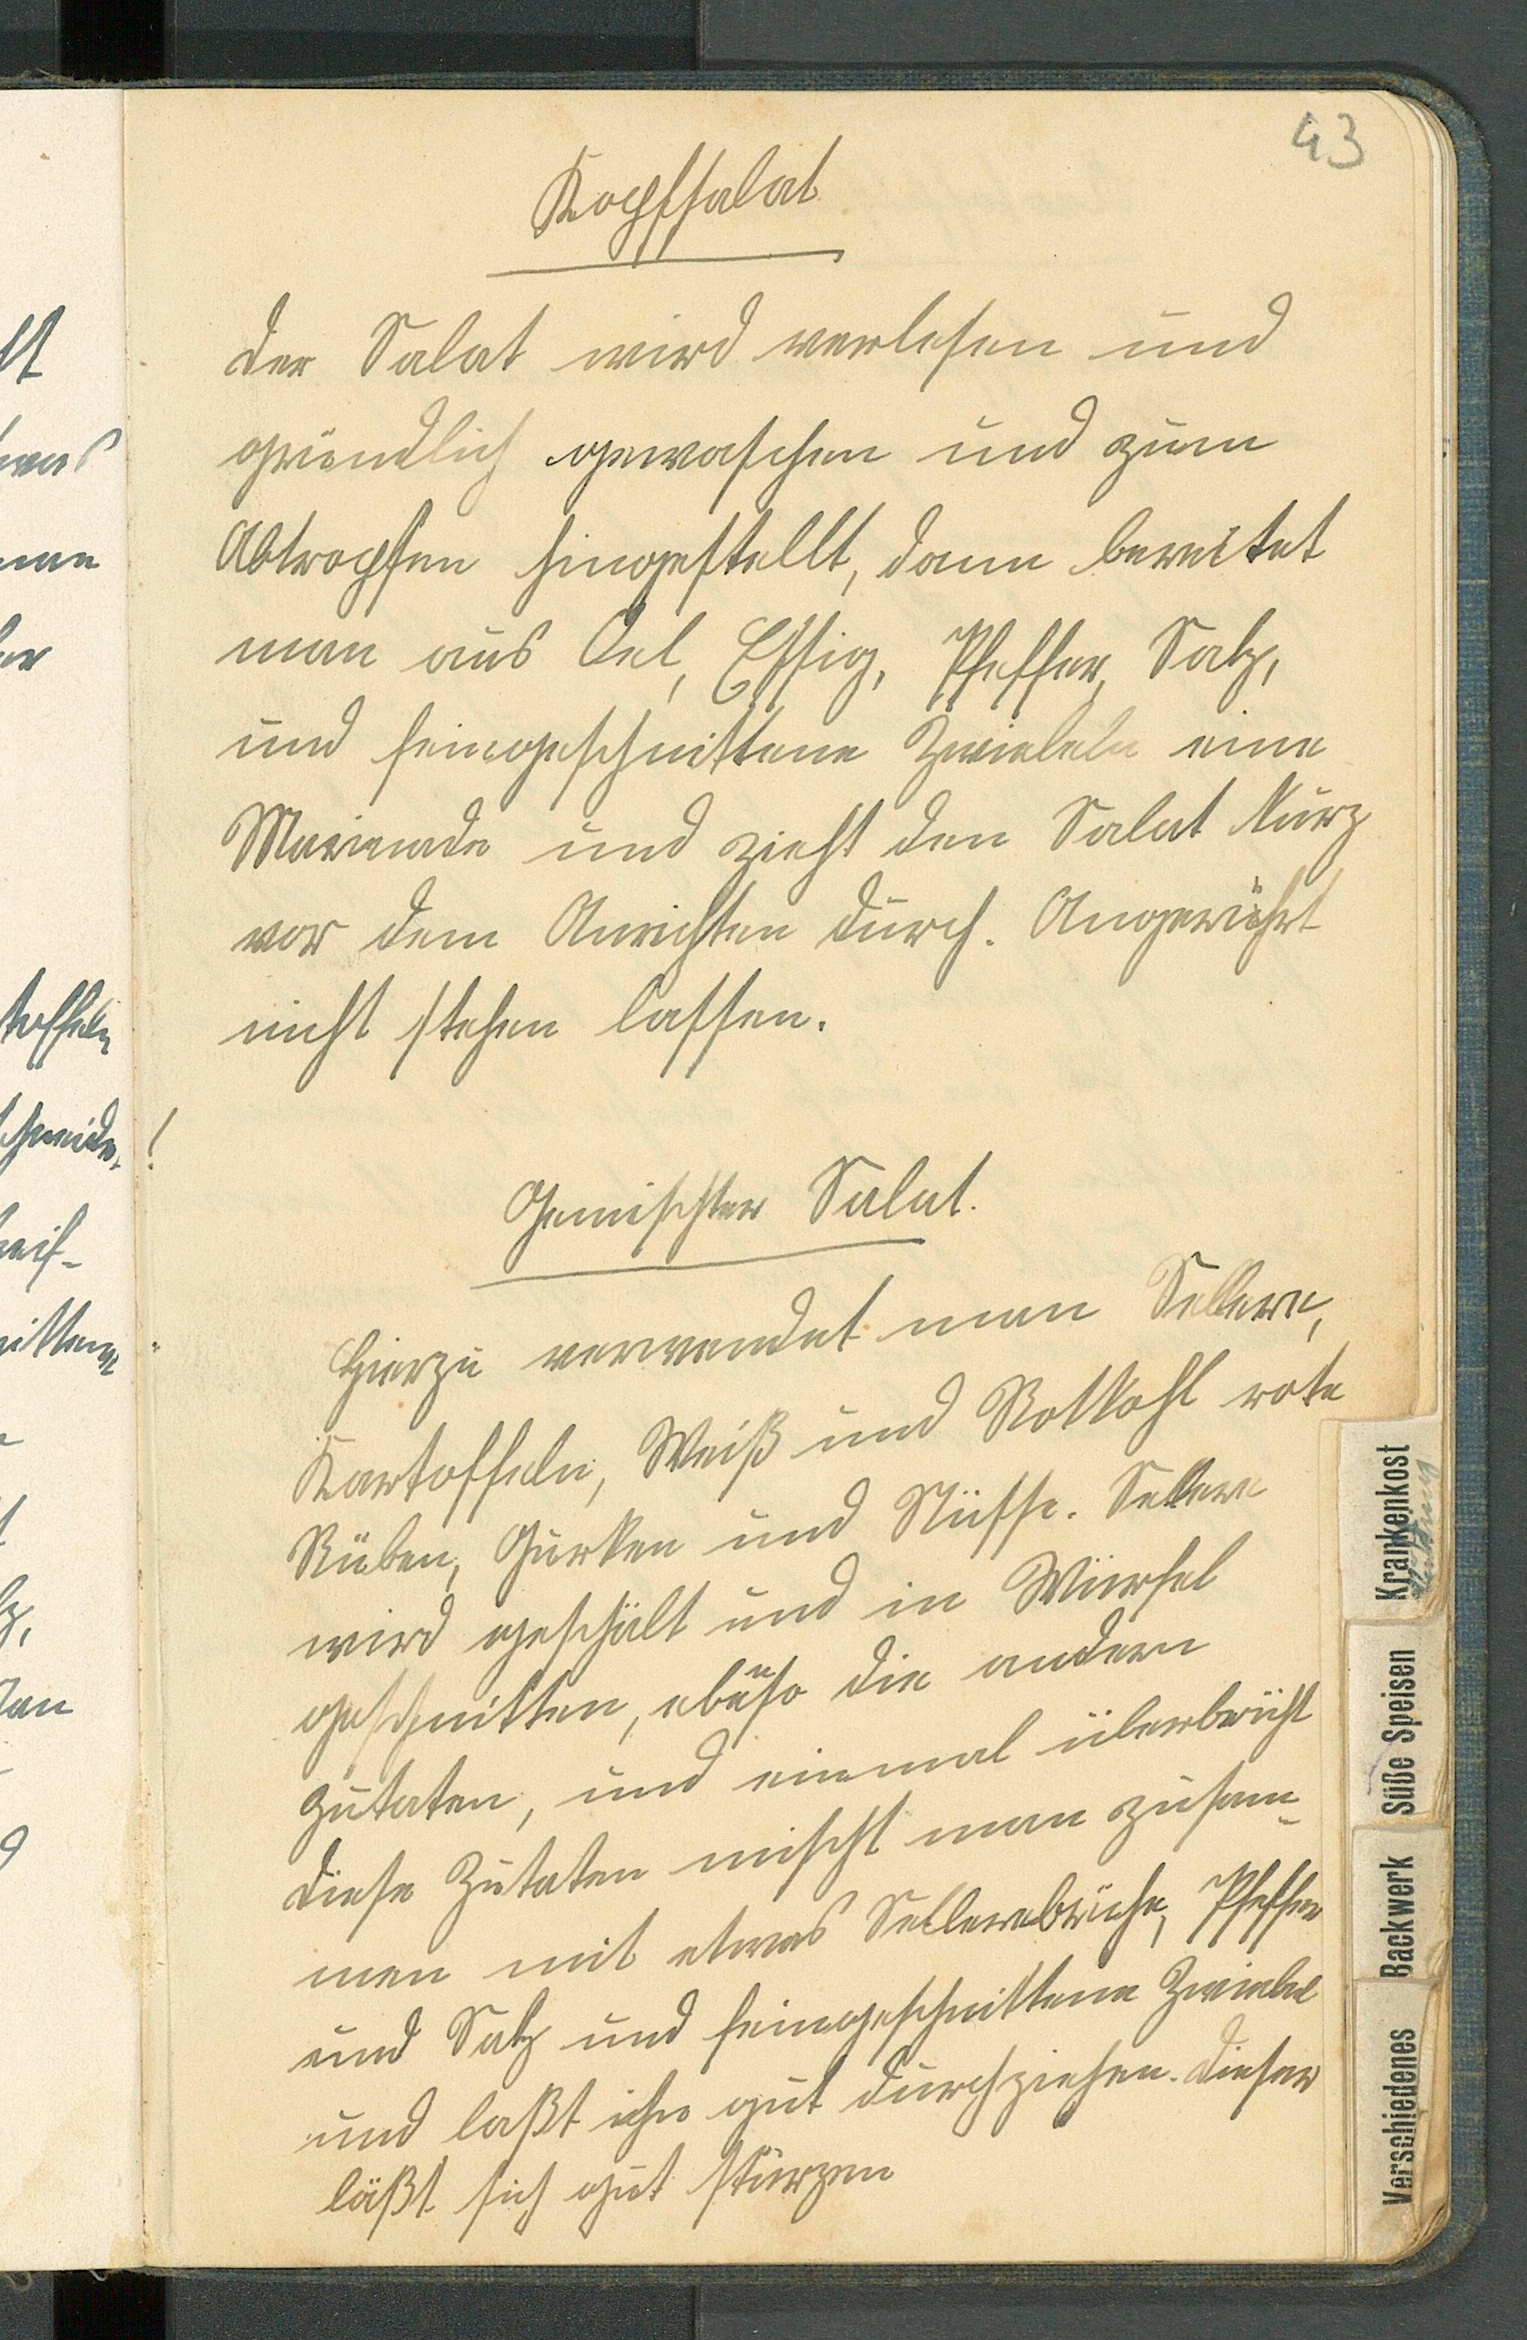 43
Kopfsalat
Der Salat wird verlesen und
gründlich gewaschen und zum
Abtropfen hingestellt, dann bereitet
man aus Oel, Essig, Pfeffer, Salz,
und feingeschnittene Zwiebeln eine
Marinade und zieht den Salat kurz
vor dem Anrichten durch. Angerührt
nicht stehen lassen.
Gemischter Salat.
Hierzu verwendet man Sellerie,
Kartoffeln, Weiß und Rotkohl rote
Rüben, Gurken und Nüsse. Sellerie
wird geschält und in Würfel
geschnitten, ebenso die andern
Zutaten, und einmal überbrüht
Diese Zutaten mischt man zusam-
men mit etwas Selleriebrühe, Pfeffer
und Salz und feingeschnittene Zwiebel
und laßt ihn gut durchziehen. Dieser
läßt sich gut stürzen
Krankenkost
Süße Speisen
Backwerk
Verschiedenes